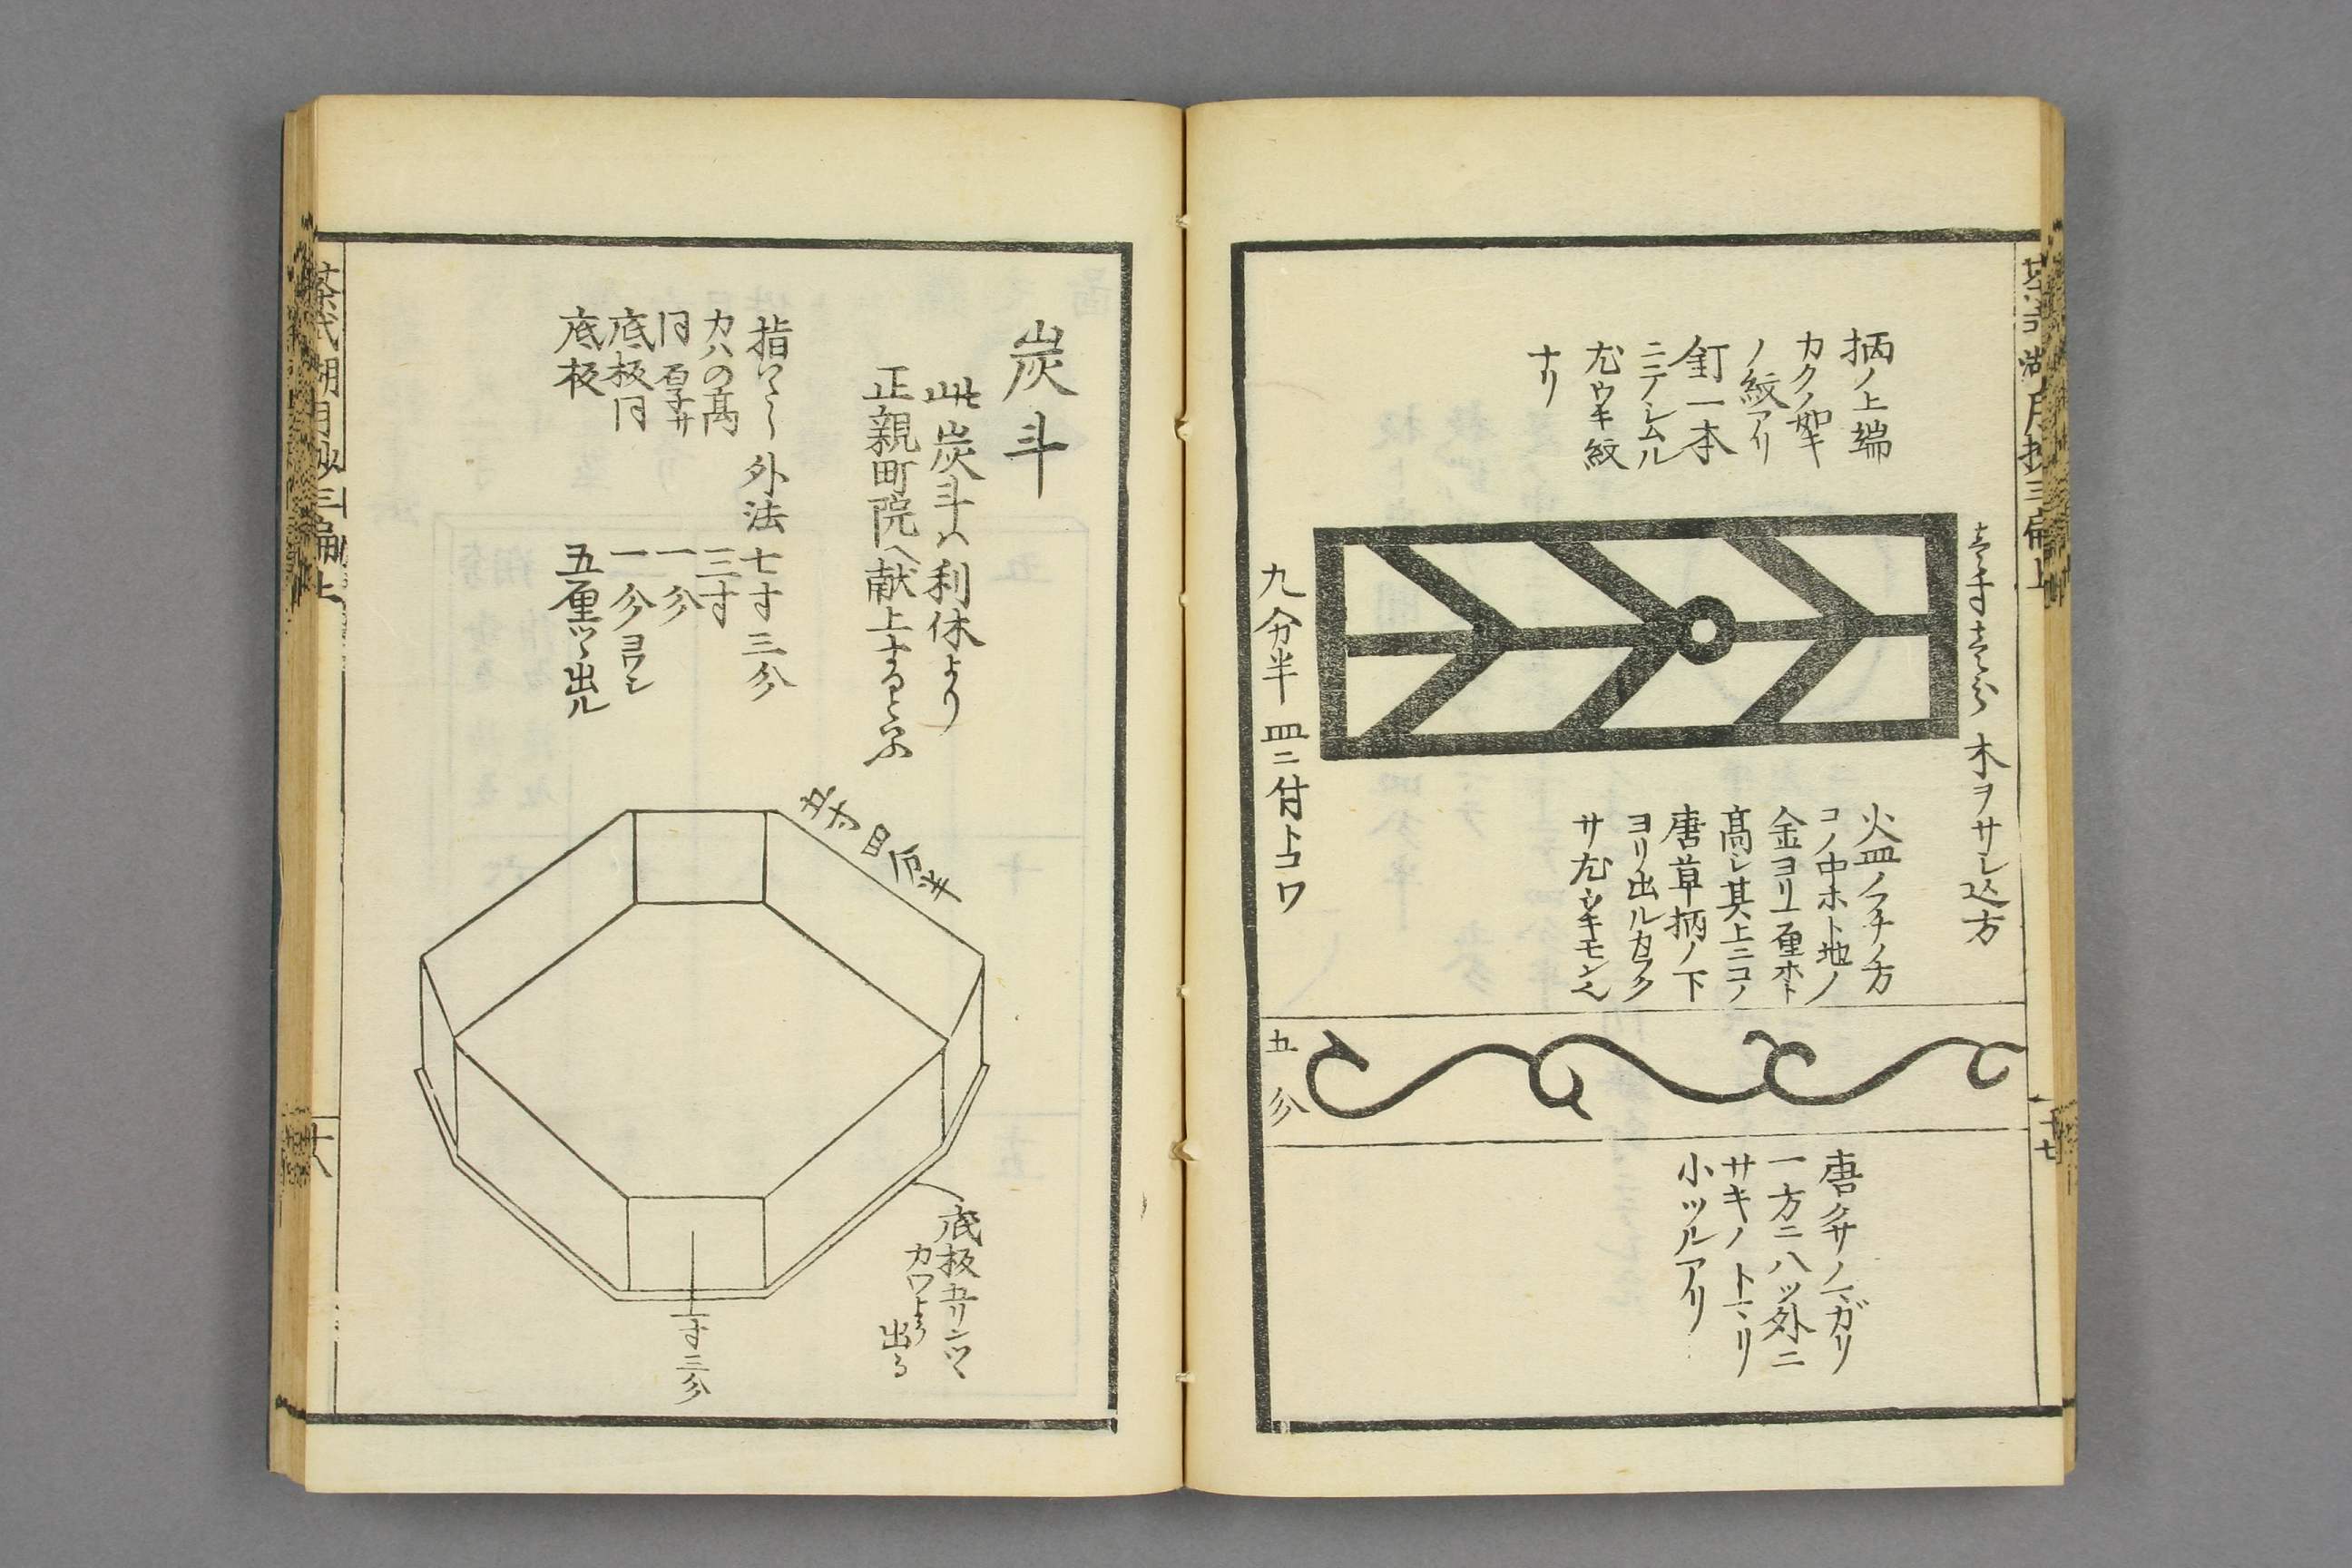 柄ノ上端
カクノ如キ
ノ紋アリ
釘一本
ニテシムル
尤ウキ紋
ナリ
壱寸壱分 木ヲサシ込方
九分半 皿ニ付トコワ
火皿ノフチノ方
コノ中ホト地ノ
金ヨリ一厘ホト
高シ其上ニコノ
唐草柄ノ下
ヨリ出ルカク
サ尤ウキモン也
五分
唐クサノマガリ
一方ニ八ッ外ニ
サキノトマリ
小ツルアリ
十七
炭斗
此炭斗ハ利休より
正親町院へ献上するといふ
指いたし 外法 七寸三分
カハの高 三寸
同 厚サ 一分
底板同 一分ヨワシ
底板 五厘ツヽ出ル
五寸四分半
底板五リンツヽ
カワより
出る
二寸三分
茶式湖月抄三編上
十八